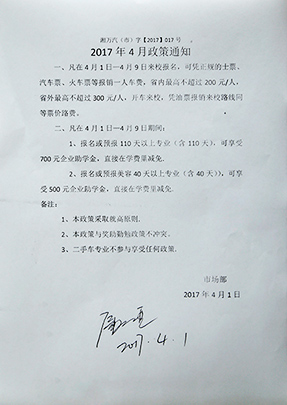 湘万汽（市）字【2017】017号
2017年4月政策通知
一、凡在4月1日—4月9日来校报名，可凭正规的士票、
汽车票、火车票等报销一人车费，省内最高不超过200元/人，
省外最高不超过300元/人，开车来校，凭油票报销来校路线同
等票价路费。
二、凡在4月1日—4月9日期间：
1、报名或预报110天以上专业（含110天），可享受
700元企业助学金，直接在学费里减免。
2、报名或预报美容40天以上专业（含40天）），可享
受500元企业助学金，直接在学费里减免。
备注：
1、本政策采取就高原则。
2、本政策与奖助勤勉政策不冲突。
3、二手车专业不参与享受任何政策。
市场部
2017年4月1日
2017.4.1